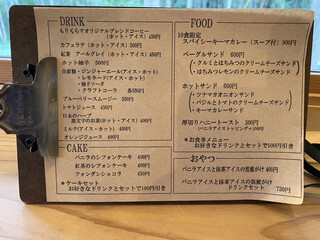 DRINK
もりくらすオリジナルブレンドコーヒー
(ホット・アイス) 450円
カフェラテ (ホット・アイス) 500円
紅茶 アールグレイ (ホット・アイス) 450円
ホット柚子 500円
自家製・ジンジャーエール(アイス・ホット)
・レモネード(アイス・ホット)
・柚子ソーダ
・クラフトコーラ 各550円
ブルーベリースムージー 550円
トマトジュース 450円
日本のハーブ
黒文字のお茶(ホット・アイス) 400円
ミルク(アイス・ホット) 400円
オレンジジュース 400円
CAKE
バニラのシフォンケーキ 400円
紅茶のシフォンケーキ 400円
フォンダンショコラ 450円
＊ケーキセット
お好きなドリンクとセットで100円引き
FOOD
10食限定
スパイシーキーマカレー (スープ付) 900円
ベーグルサンド 600円
・クルミとはちみつのクリームチーズサンド
・はちみつレモンのクリームチーズサンド
ホットサンド 600円
・ツナマヨオニオンサンド
・バジルとトマトのクリームチーズサンド
厚切りハニートースト 500円
(バニラアイストッピング+100円)
＊お食事メニュー
お好きなドリンクとセットで100円引き
おやつ
バニラアイスと抹茶アイスの黒蜜がけ 400円
バニラアイスと抹茶アイスの黒蜜がけ
ドリンクセット 750円